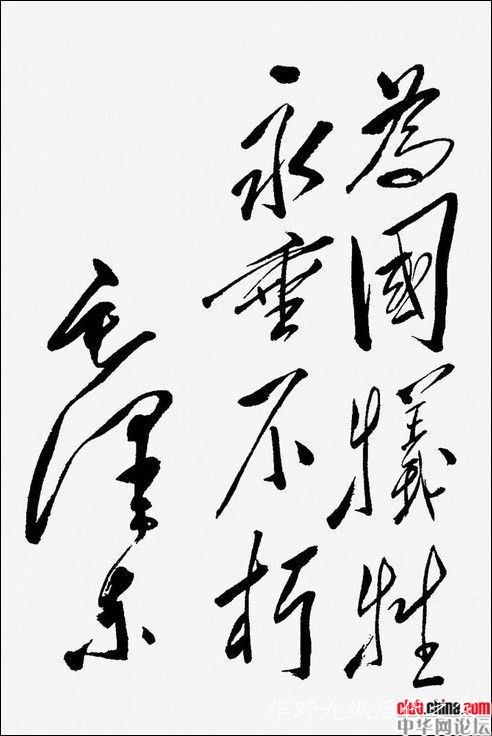 為國犧牲
永垂不朽
毛澤东
华野九纵后代
club.china.com
中华网论坛